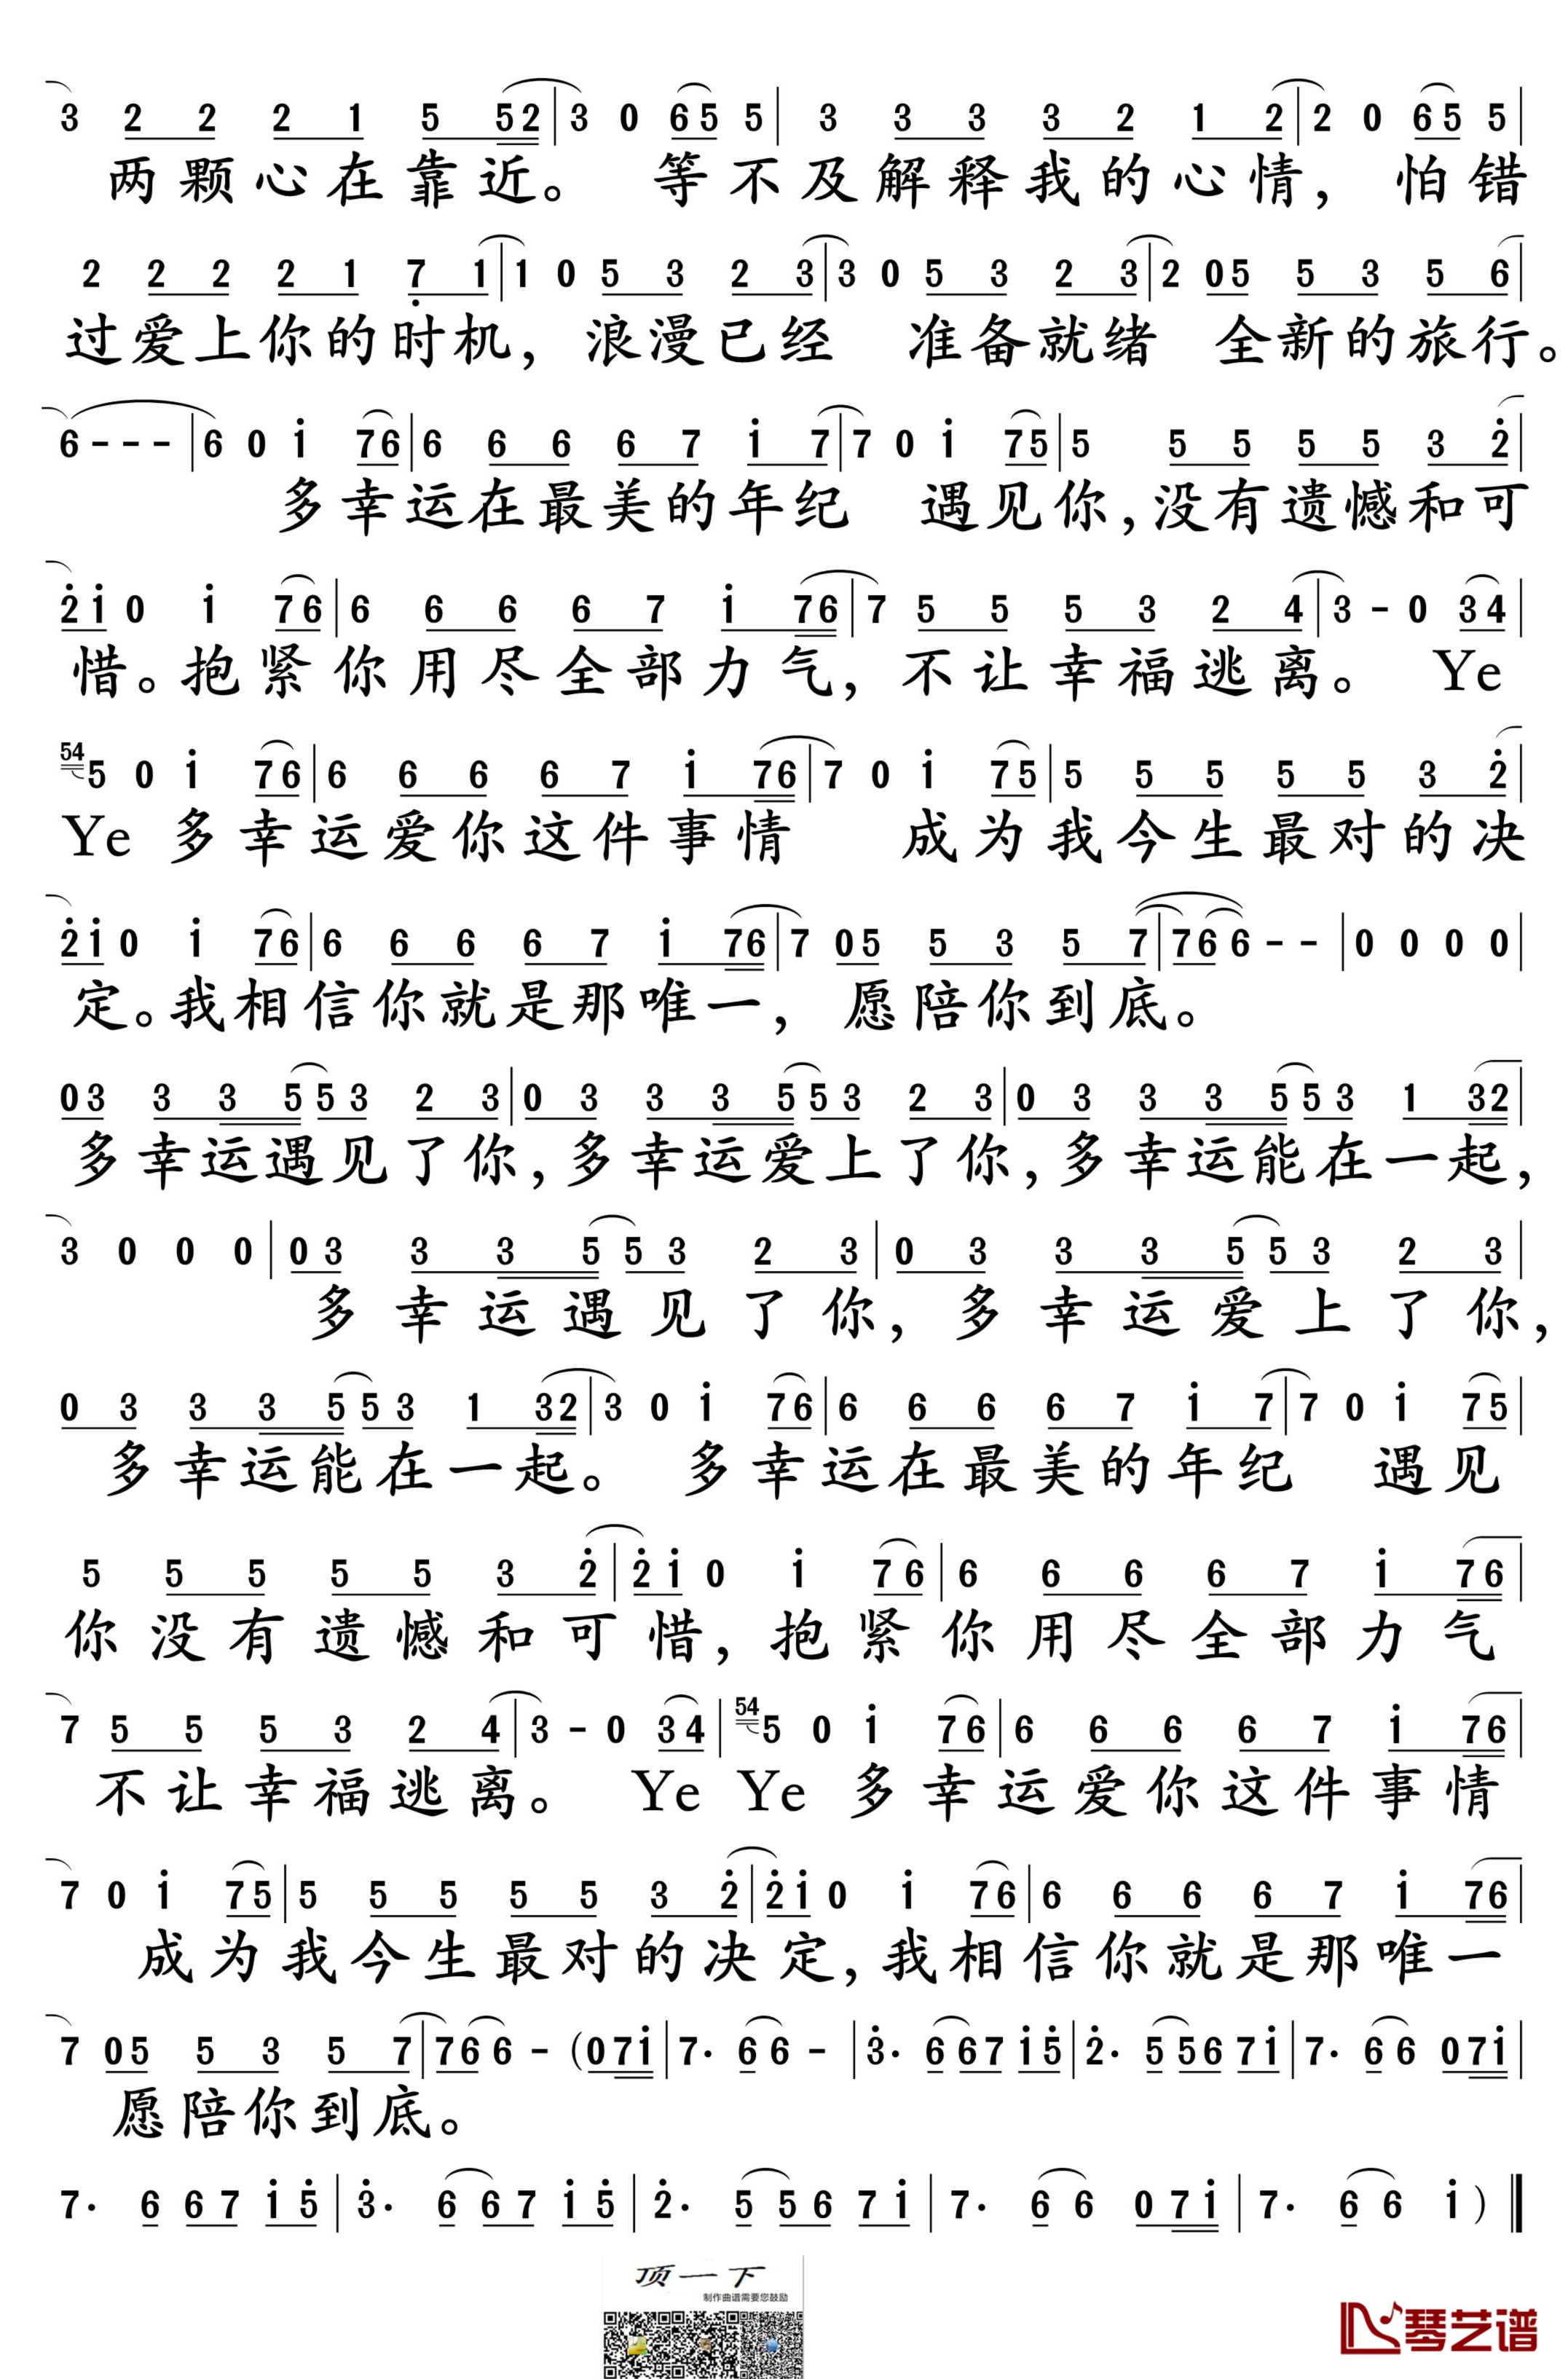 3 2 2 2 1 5 52 | 3 0 65 5 | 3 3 3 3 2 1 2 | 2 0 65 5 |
两颗心在靠近。 等不及解释我的心情, 怕错
2 2 2 2 1 7 1 | 1 0 5 3 2 3 | 3 0 5 3 2 3 | 2 05 5 3 5 6 |
过爱上你的时机, 浪漫已经 准备就绪 全新的旅行。
6 - - - | 6 0 i 76 | 6 6 6 6 7 i 7 | 7 0 i 75 | 5 5 5 5 5 3 2 |
多幸运在最美的年纪 遇见你,没有遗憾和可
2i 0 i 76 | 6 6 6 6 7 i 76 | 7 5 5 5 3 2 4 | 3 - 0 34 |
惜。抱紧你用尽全部力气, 不让幸福逃离。 Ye
54 5 0 i 76 | 6 6 6 6 7 i 76 | 7 0 i 75 | 5 5 5 5 5 3 2 |
Ye 多幸运爱你这件事情 成为我今生最对的决
2i 0 i 76 | 6 6 6 6 7 i 76 | 7 05 5 3 5 7 | 76 6 - - | 0 0 0 0 |
定。我相信你就是那唯一, 愿陪你到底。
03 3 3 5 53 2 3 | 0 3 3 3 5 53 2 3 | 0 3 3 3 5 53 1 32 |
多幸运遇见了你,多幸运爱上了你,多幸运能在一起,
3 0 0 0 | 03 3 3 5 53 2 3 | 0 3 3 3 5 53 2 3 |
多幸运遇见了你, 多幸运爱上了你,
0 3 3 3 5 53 1 32 | 3 0 i 76 | 6 6 6 6 7 i 7 | 7 0 i 75 |
多幸运能在一起。 多幸运在最美的年纪 遇见
5 5 5 5 5 3 2 | 2i 0 i 76 | 6 6 6 6 7 i 76 |
你没有遗憾和可惜, 抱紧你用尽全部力气
7 5 5 5 3 2 4 | 3 - 0 34 | 54 5 0 i 76 | 6 6 6 6 7 i 76 |
不让幸福逃离。 Ye Ye 多幸运爱你这件事情
7 0 i 75 | 5 5 5 5 5 3 2 | 2i 0 i 76 | 6 6 6 6 7 i 76 |
成为我今生最对的决定,我相信你就是那唯一
7 05 5 3 5 7 | 76 6 - (071 | 7· 6 6 - | 3· 6 67 i5 | 2· 5 56 7i | 7· 6 6 07i |
愿陪你到底。
7· 6 67 i5 | 3· 6 67 i5 | 2· 5 56 7i | 7· 6 6 07i | 7· 6 6 i )
顶一下
制作曲谱需要您鼓励
琴艺谱